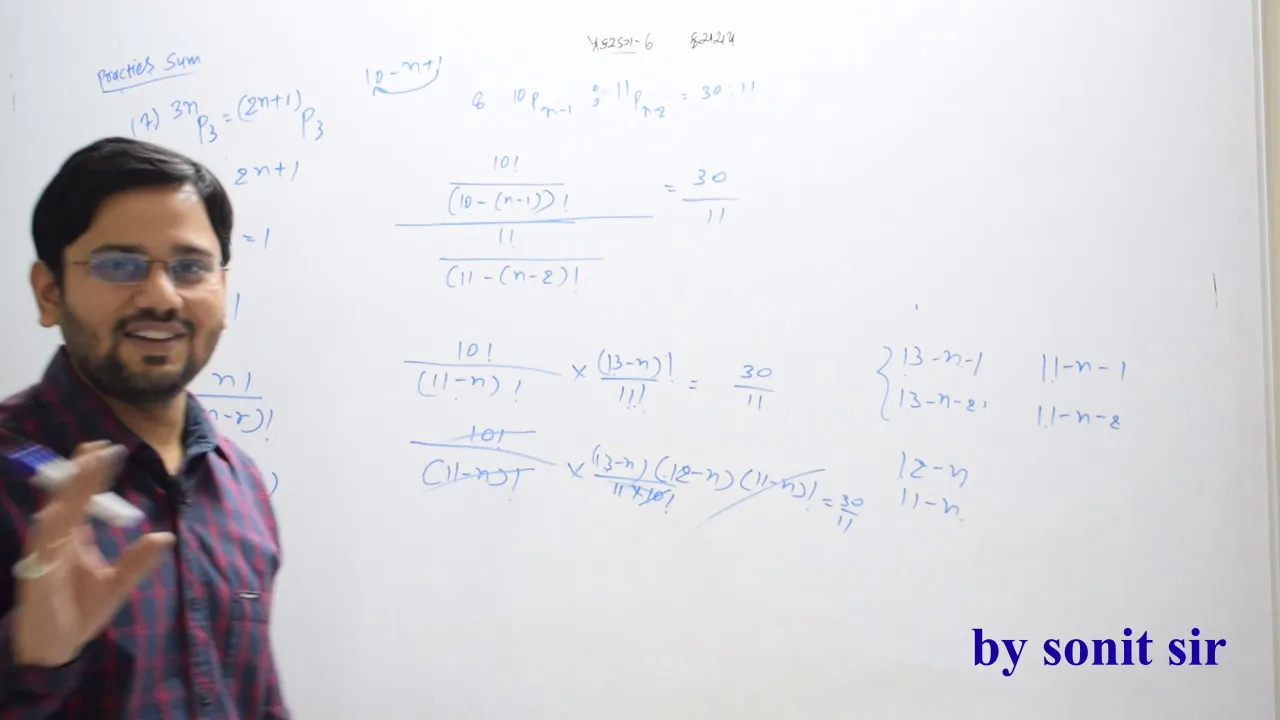 પ્રકરણ-9 ક્રમચય
Practies Sum
(7) 3nP3 = (2n+1)P3
2n+1
= 1
1
n!
n-r)!
)
10-n+1
8 10Pn-1 : 11Pn-2 = 30:11
10!
(10-(n-1))!
11!
(11-(n-2)!
= 30
11
10!
(11-n)!
× (13-n)!
11!
= 30
11
10!
(11-n)!
× (13-n)(12-n)(11-n)!
11×10!
= 30
11
13-n-1
13-n-2
11-n-1
11-n-2
12-n
11-n
by sonit sir